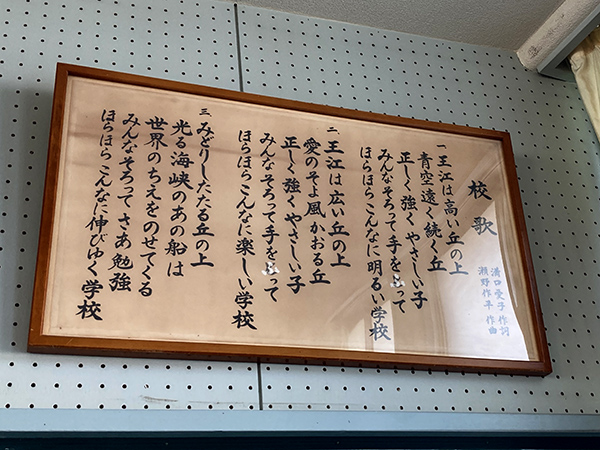 校歌
溝口愛子 作詞
瀬野作平 作曲
一 王江は高い丘の上
青空遠く続く丘
正しく強くやさしい子
みんなそろって手をとって
ほらほらこんなに明るい学校
二 王江は広い丘の上
愛のそよ風かおる丘
正しく強くやさしい子
みんなそろって手をとって
ほらほらこんなに楽しい学校
三 みどりしたたる丘の上
光る海峡のあの船は
世界のちえをのせてくる
みんなそろってさあ勉強
ほらほらこんなに伸びゆく学校